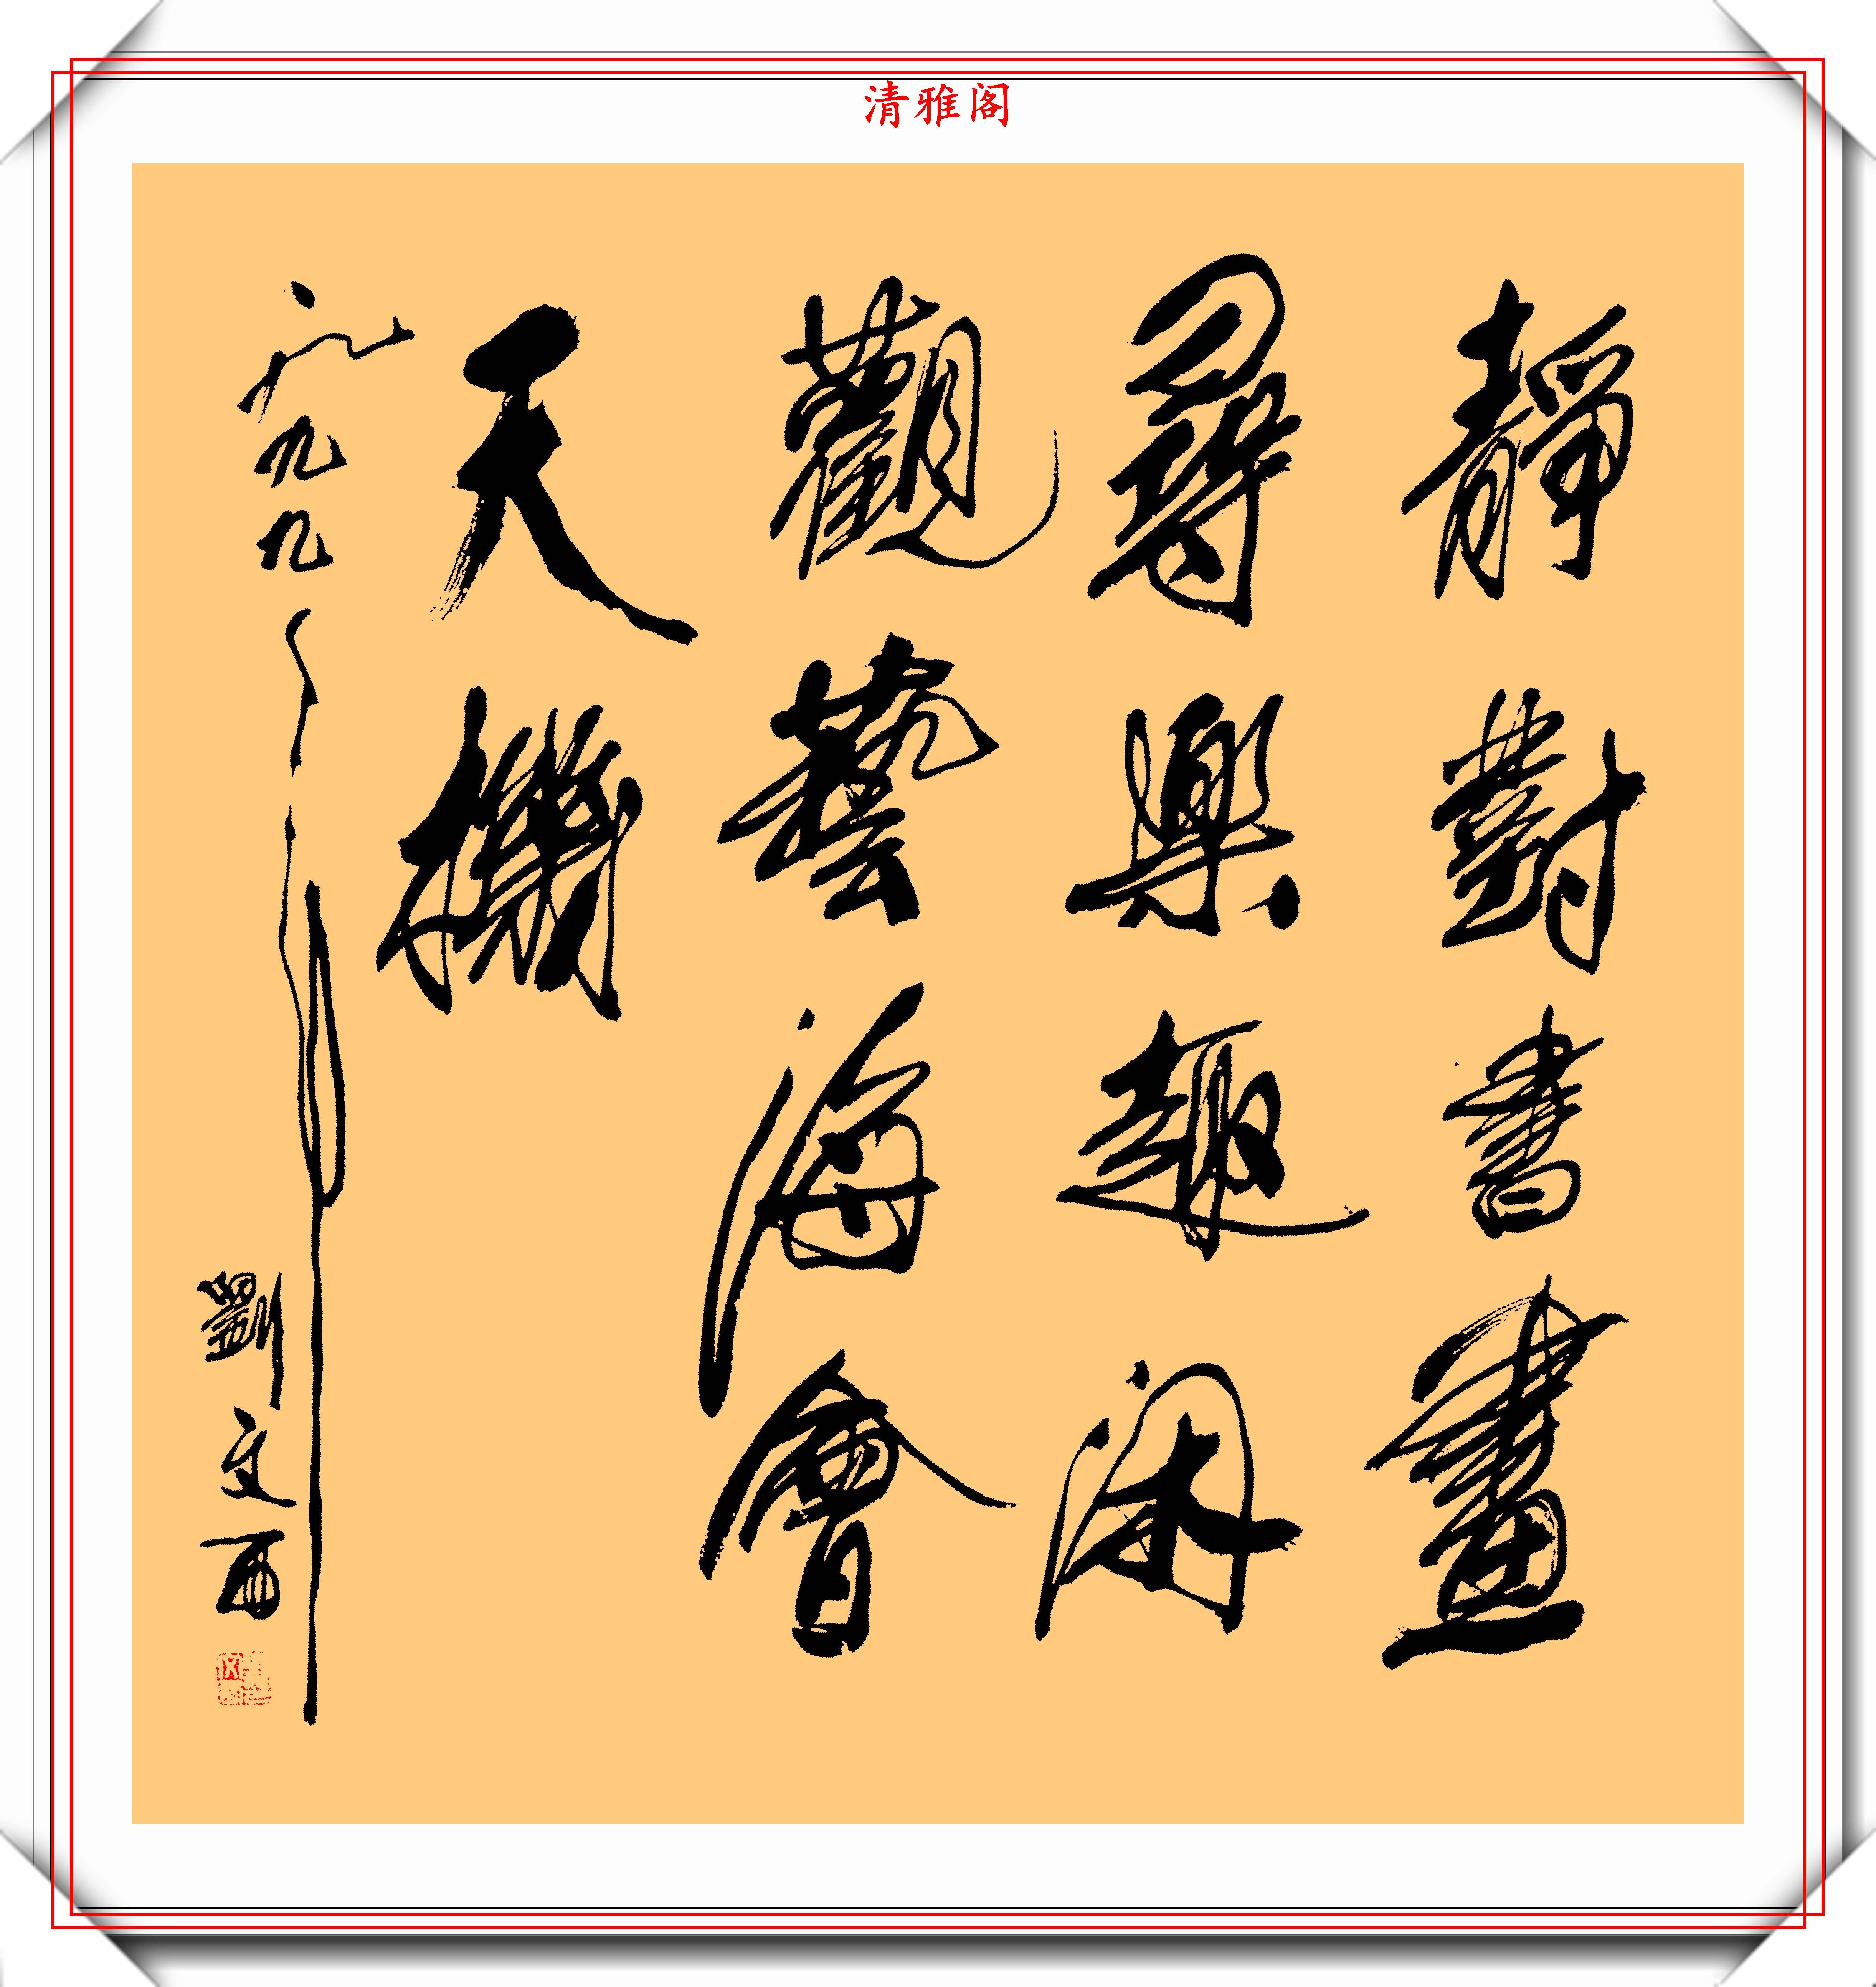 清雅阁
靜對書畫
尋樂趣閑
觀藝海會
天機
九九
劉文西